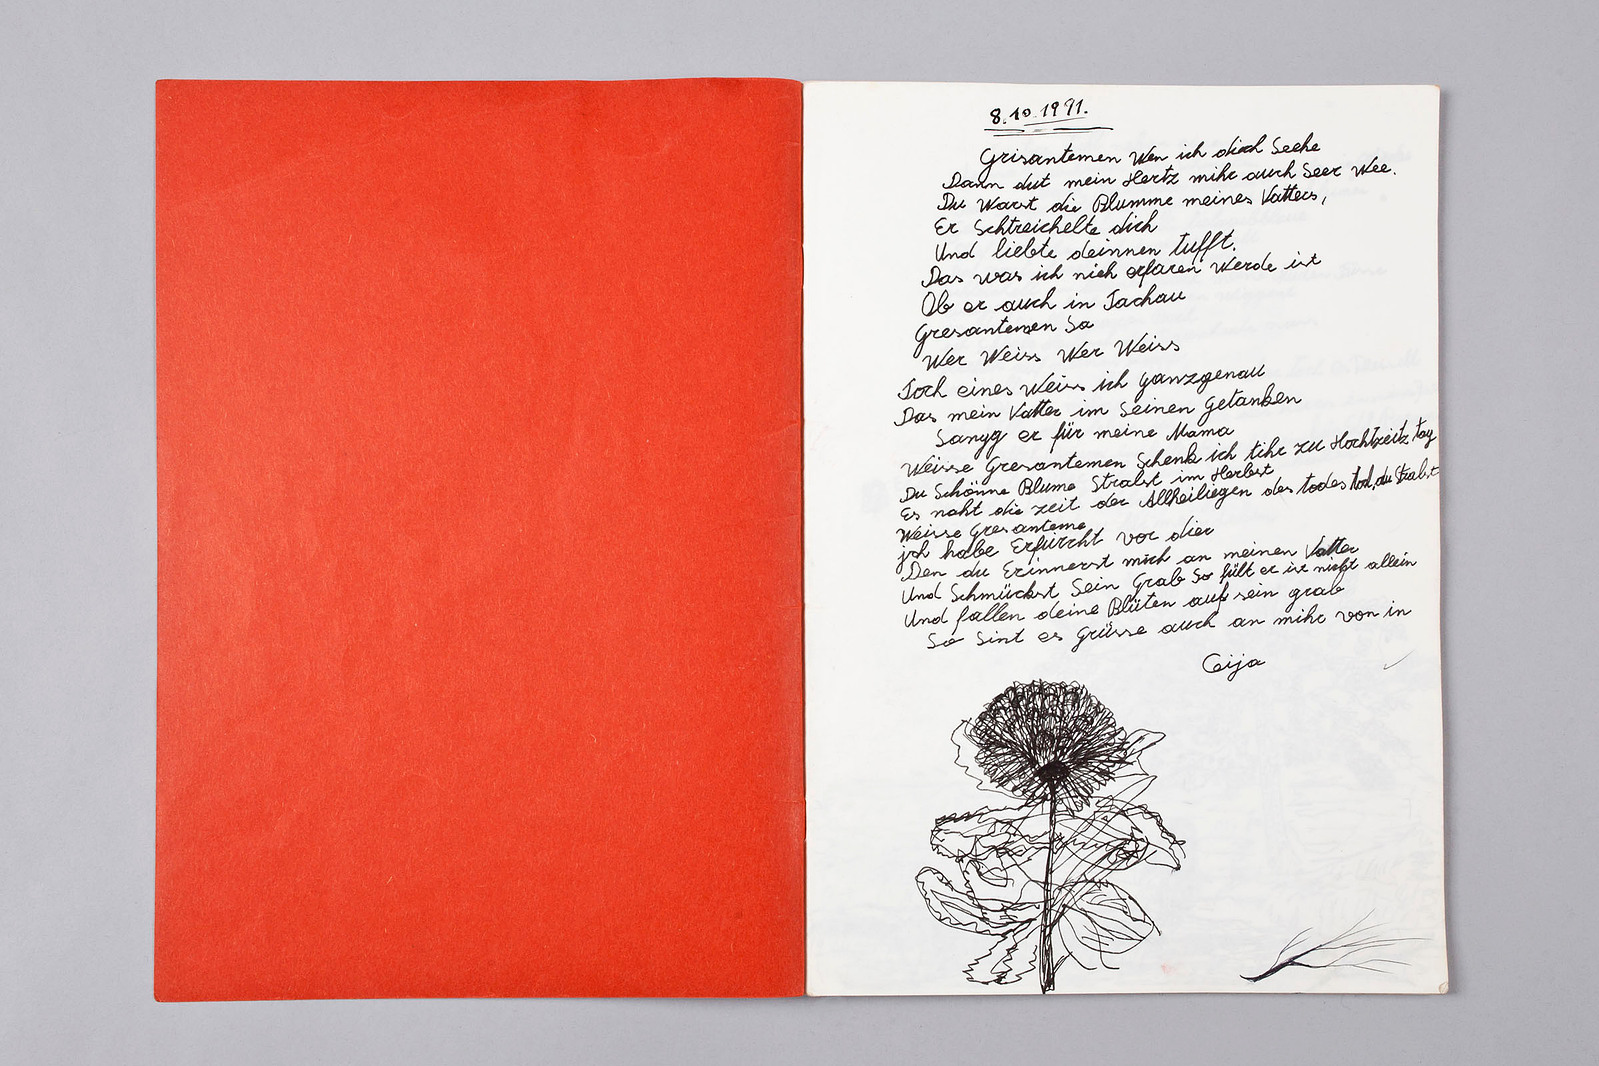 8.10.1991.
Grisantemen Wen ich dich Seehe
Dann dut mein Hertz mihr auch Seer Wee.
Du Warst die Blumme meines Vatters,
Er Schtreichelte dich
Und liebte deinnen Tufft.
Das was ich nieh erfaren Werde ist
Ob er auch in Tachau
Gresantemen Sa
Wer Weiss Wer Weiss
Toch eines Weiss ich ganzgenau
Das mein Vatter im Seinen Getanken
Sanyg er für meine Mama
Weisse Gresantemen Schenk ich tihr zu Hochtzeitz tag
Du Schönne Blume Stralst im Herbst
Es naht die zeit der Allheiliegen des todes tod, du Stralst
Weisse Gresanteme
jch habe Erfürcht vor dier
Den du Erinnerst mich an meinen Vatter
Und Schmückst Sein Grab So fült er ist nicht allein
Und fallen deine Blüten auf sein grab
So Sint es Grüsse auch an mihr von in
Ceija